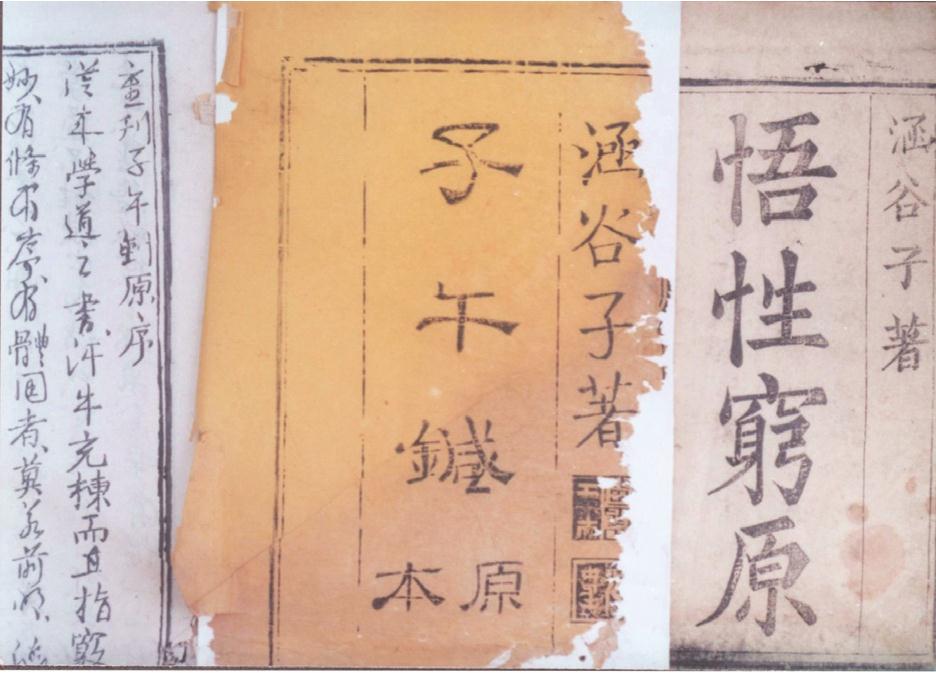 涵谷子著
悟性窮原
涵谷子著
子午鍼
原本
重刊子午原序
從來學道之書汗牛充棟而直指窮
妙有條有序有體者莫若前明